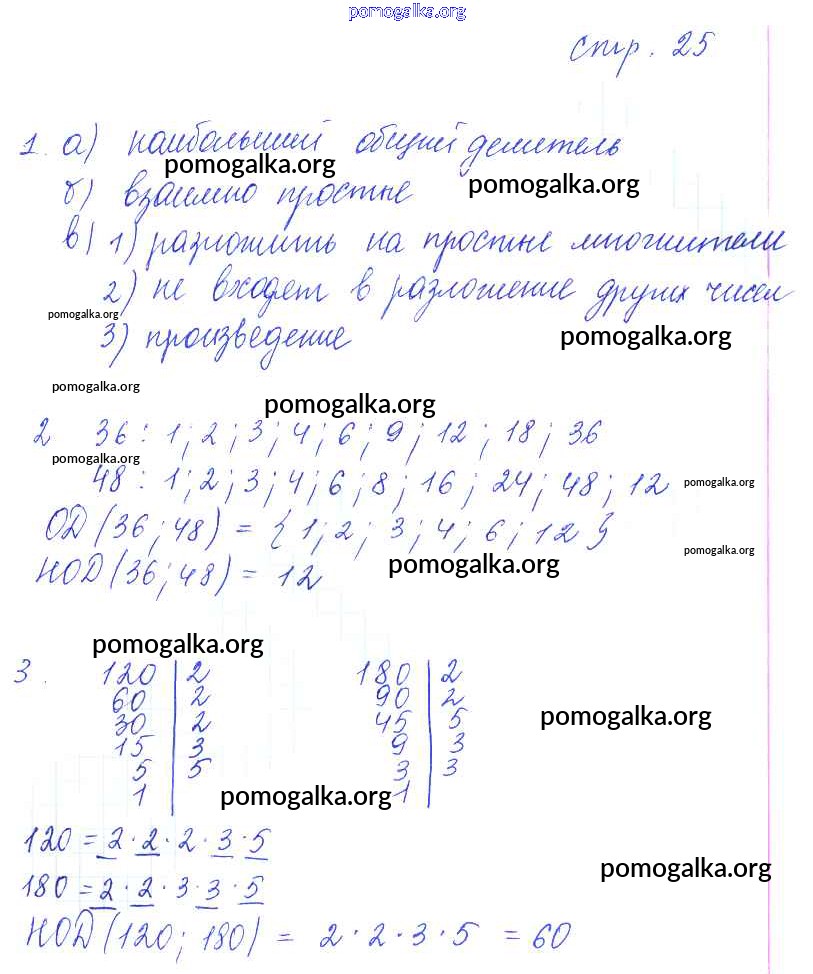 pomogalka.org
стр. 25
1. а) наибольший общий делитель
pomogalka.org
б) взаимно простые
pomogalka.org
в) 1) разложить на простые множители
2) не входят в разложение других чисел
pomogalka.org
3) произведение
pomogalka.org
pomogalka.org
pomogalka.org
2 36 : 1; 2; 3; 4; 6; 9; 12; 18; 36
pomogalka.org
48 : 1; 2; 3; 4; 6; 8; 16; 24; 48; 12
pomogalka.org
ОД (36; 48) = {1; 2; 3; 4; 6; 12}
pomogalka.org
НОД (36; 48) = 12
pomogalka.org
pomogalka.org
3. 120 | 2 180 | 2
60 | 2 90 | 2
30 | 2 45 | 5
pomogalka.org
15 | 3 9 | 3
5 | 5 3 | 3
1 | 1 |
pomogalka.org
120 = 2 · 2 · 2 · 3 · 5
pomogalka.org
180 = 2 · 2 · 3 · 3 · 5
НОД (120; 180) = 2 · 2 · 3 · 5 = 60